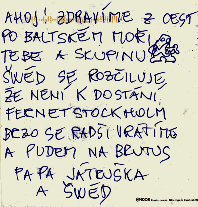 AHOJ ZDRAVÍME Z CEST
PO BALTSKÉM MOŘI
TEBE A SKUPINU
ŠWÉD SE ROZČILUJE,
ŽE NENÍ K DOSTÁNÍ
FERNET STOCKHOLM
BRZO SE RADŠI VRÁTÍME
A PUDEM NA BRUTUS
PA PA JÁTRUŠKA
A ŠWÉD